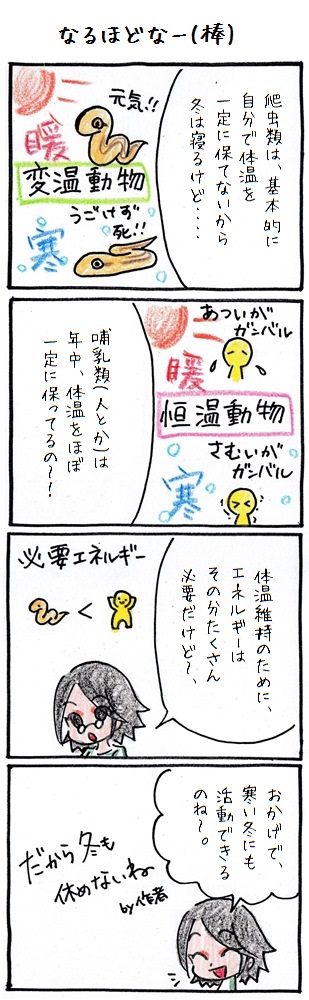 なるほどなー(棒)
爬虫類は、基本的に
自分で体温を
一定に保てないから
冬は寝るけど・・・・
元気!!
暖
変温動物
うごけず
死!!
寒
あついが
ガンバル
暖
恒温動物
さむいが
ガンバル
寒
哺乳類(人とか)は
年中、体温をほぼ
一定に保ってるの〜!
体温維持のために、
エネルギーは
その分たくさん
必要だけど〜、
必要エネルギー
<
おかげで、
寒い冬にも
活動できる
のね〜。
だから冬も
休めないね
by作者